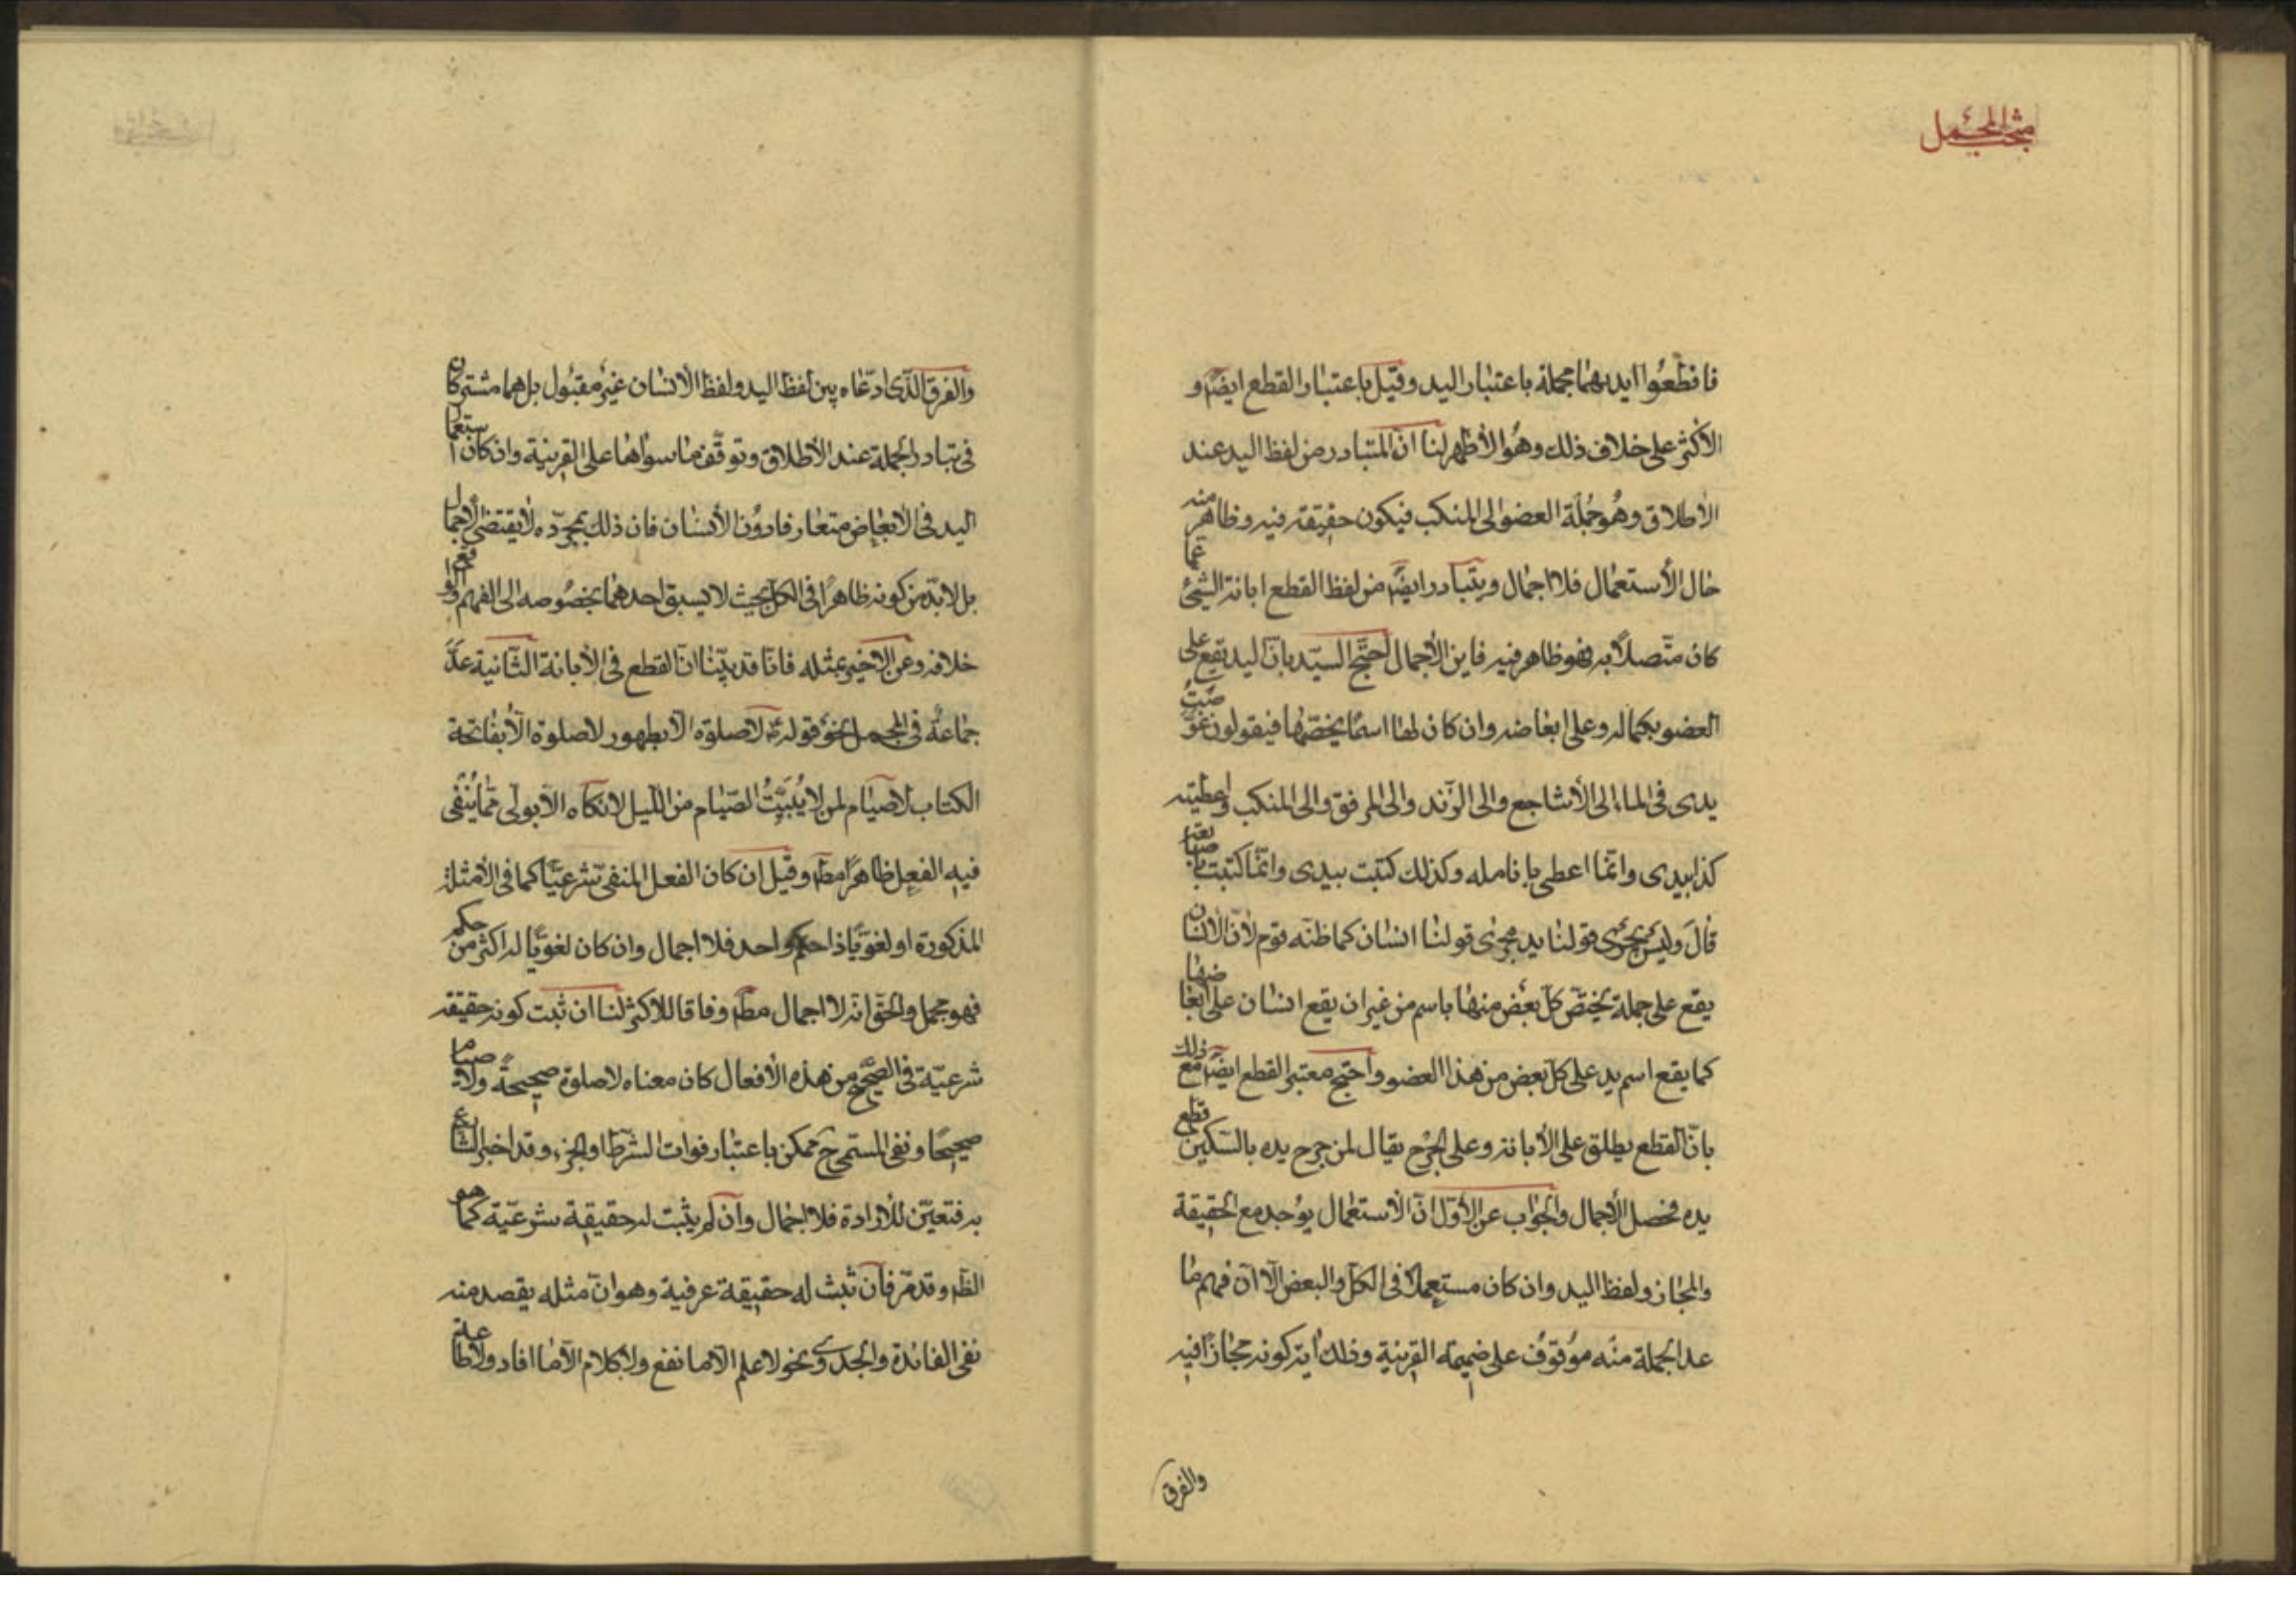 مبحث المجمل
فاقطعوا ايديهما مجملة باعتبار اليد وقيل باعتبار القطع ايضا و
الأكثر على خلاف ذلك وهو الأظهر لنا انّ المتبادر من لفظ اليد عند
الأطلاق وهو جملة العضو الى المنكب فيكون حقيقة فيه وظاهر منه
حال الأستعمال فلا اجمال ويتبادر ايضا من لفظ القطع ابانة الشيئ عما
كان متّصلا به فهو ظاهر فيه فاين الأجمال احتجّ السيّد بانّ اليد يقع على
العضو بكماله وعلى ابعاضه وان كان لها اسما يخصّها فيقولون غوّصت
يدى فى الماء الى الأشاجع والى الزّند والى المرفق والى المنكب واعطيته
كذا بيدى وانّما اعطى بانامله وكذلك كتبت بيدى وانّما كتبت باصابعه
قال وليس يجرى قولنا يد مجرى قولنا انسان كما ظنّه قوم لأنّ الانسان
يقع على جملة يختصّ كلّ بعض منها باسم من غير ان يقع انسان على ابعاضها
كما يقع اسم يد على كلّ بعض من هذا العضو واحتج معتبر القطع ايضا مع ذلك
بانّ القطع يطلق على الأبانة وعلى الجرح يقال لمن جرح يده بالسّكين قطع
يده فحصل الأجمال والجواب عن الأوّل انّ الأستعمال يوجد مع الحقيقة
والمجاز ولفظ اليد وان كان مستعملا فى الكلّ والبعض الّا انّ فهم ما
عدا الجملة منه موقوف على ضميمة القرينة وذلك اية كونه مجازا فيه
والفرق
والفرق الّذى ادّعاه بين لفظ اليد ولفظ الأنسان غير مقبول بل هما مشتركان
فى تبادر الجملة عند الأطلاق وتوقّف ما سواها على القرينة وان كان استعمال
اليد فى الأبعاض متعارفا دون الأنسان فان ذلك بمجرّده لا يقتضى الأجمال
بل لا بدّ من كونه ظاهرا فى الكل بحيث لا يسبق احدهما بخصوصه الى الفهم والواقع
خلافه وعن الاخير بمثله فانّا قد بيّنّا انّ القطع فى الأبانة الثّانية عدّ
جماعة فى المجمل نحو قوله ع لا صلوة الّا بطهور لا صلوة الّا بفاتحة
الكتاب لا صيام لمن لا يبيّت الصّيام من اللّيل لا نكاح الّا بولى ممّا ينفى
فيه الفعل ظاهرا مط وقيل ان كان الفعل المنفى شرعيّا كما فى الأمثلة
المذكورة او لغويّا ذا حكم واحد فلا اجمال وان كان لغويّا له اكثر من حكم
فهو مجمل والحقّ انّه لا اجمال مط وفاقا للاكثر لنا ان ثبت كونه حقيقة
شرعيّة فى الصّحيح من هذه الأفعال كان معناه لا صلوة صحيحة ولا صياما
صحيحا ونفى المسمّى ح ممكن باعتبار فوات الشّرط او الجزء وقد اخبر الشارع
به فتعيّن للأرادة فلا اجمال وان لم يثبت له حقيقة شرعيّة كما هو
الظ وقد مرّ فان ثبت له حقيقة عرفية وهو انّ مثله يقصد منه
نفى الفائدة والجدوى نحو لا علم الّا ما نفع ولا كلام الّا ما افاد ولا طاعة